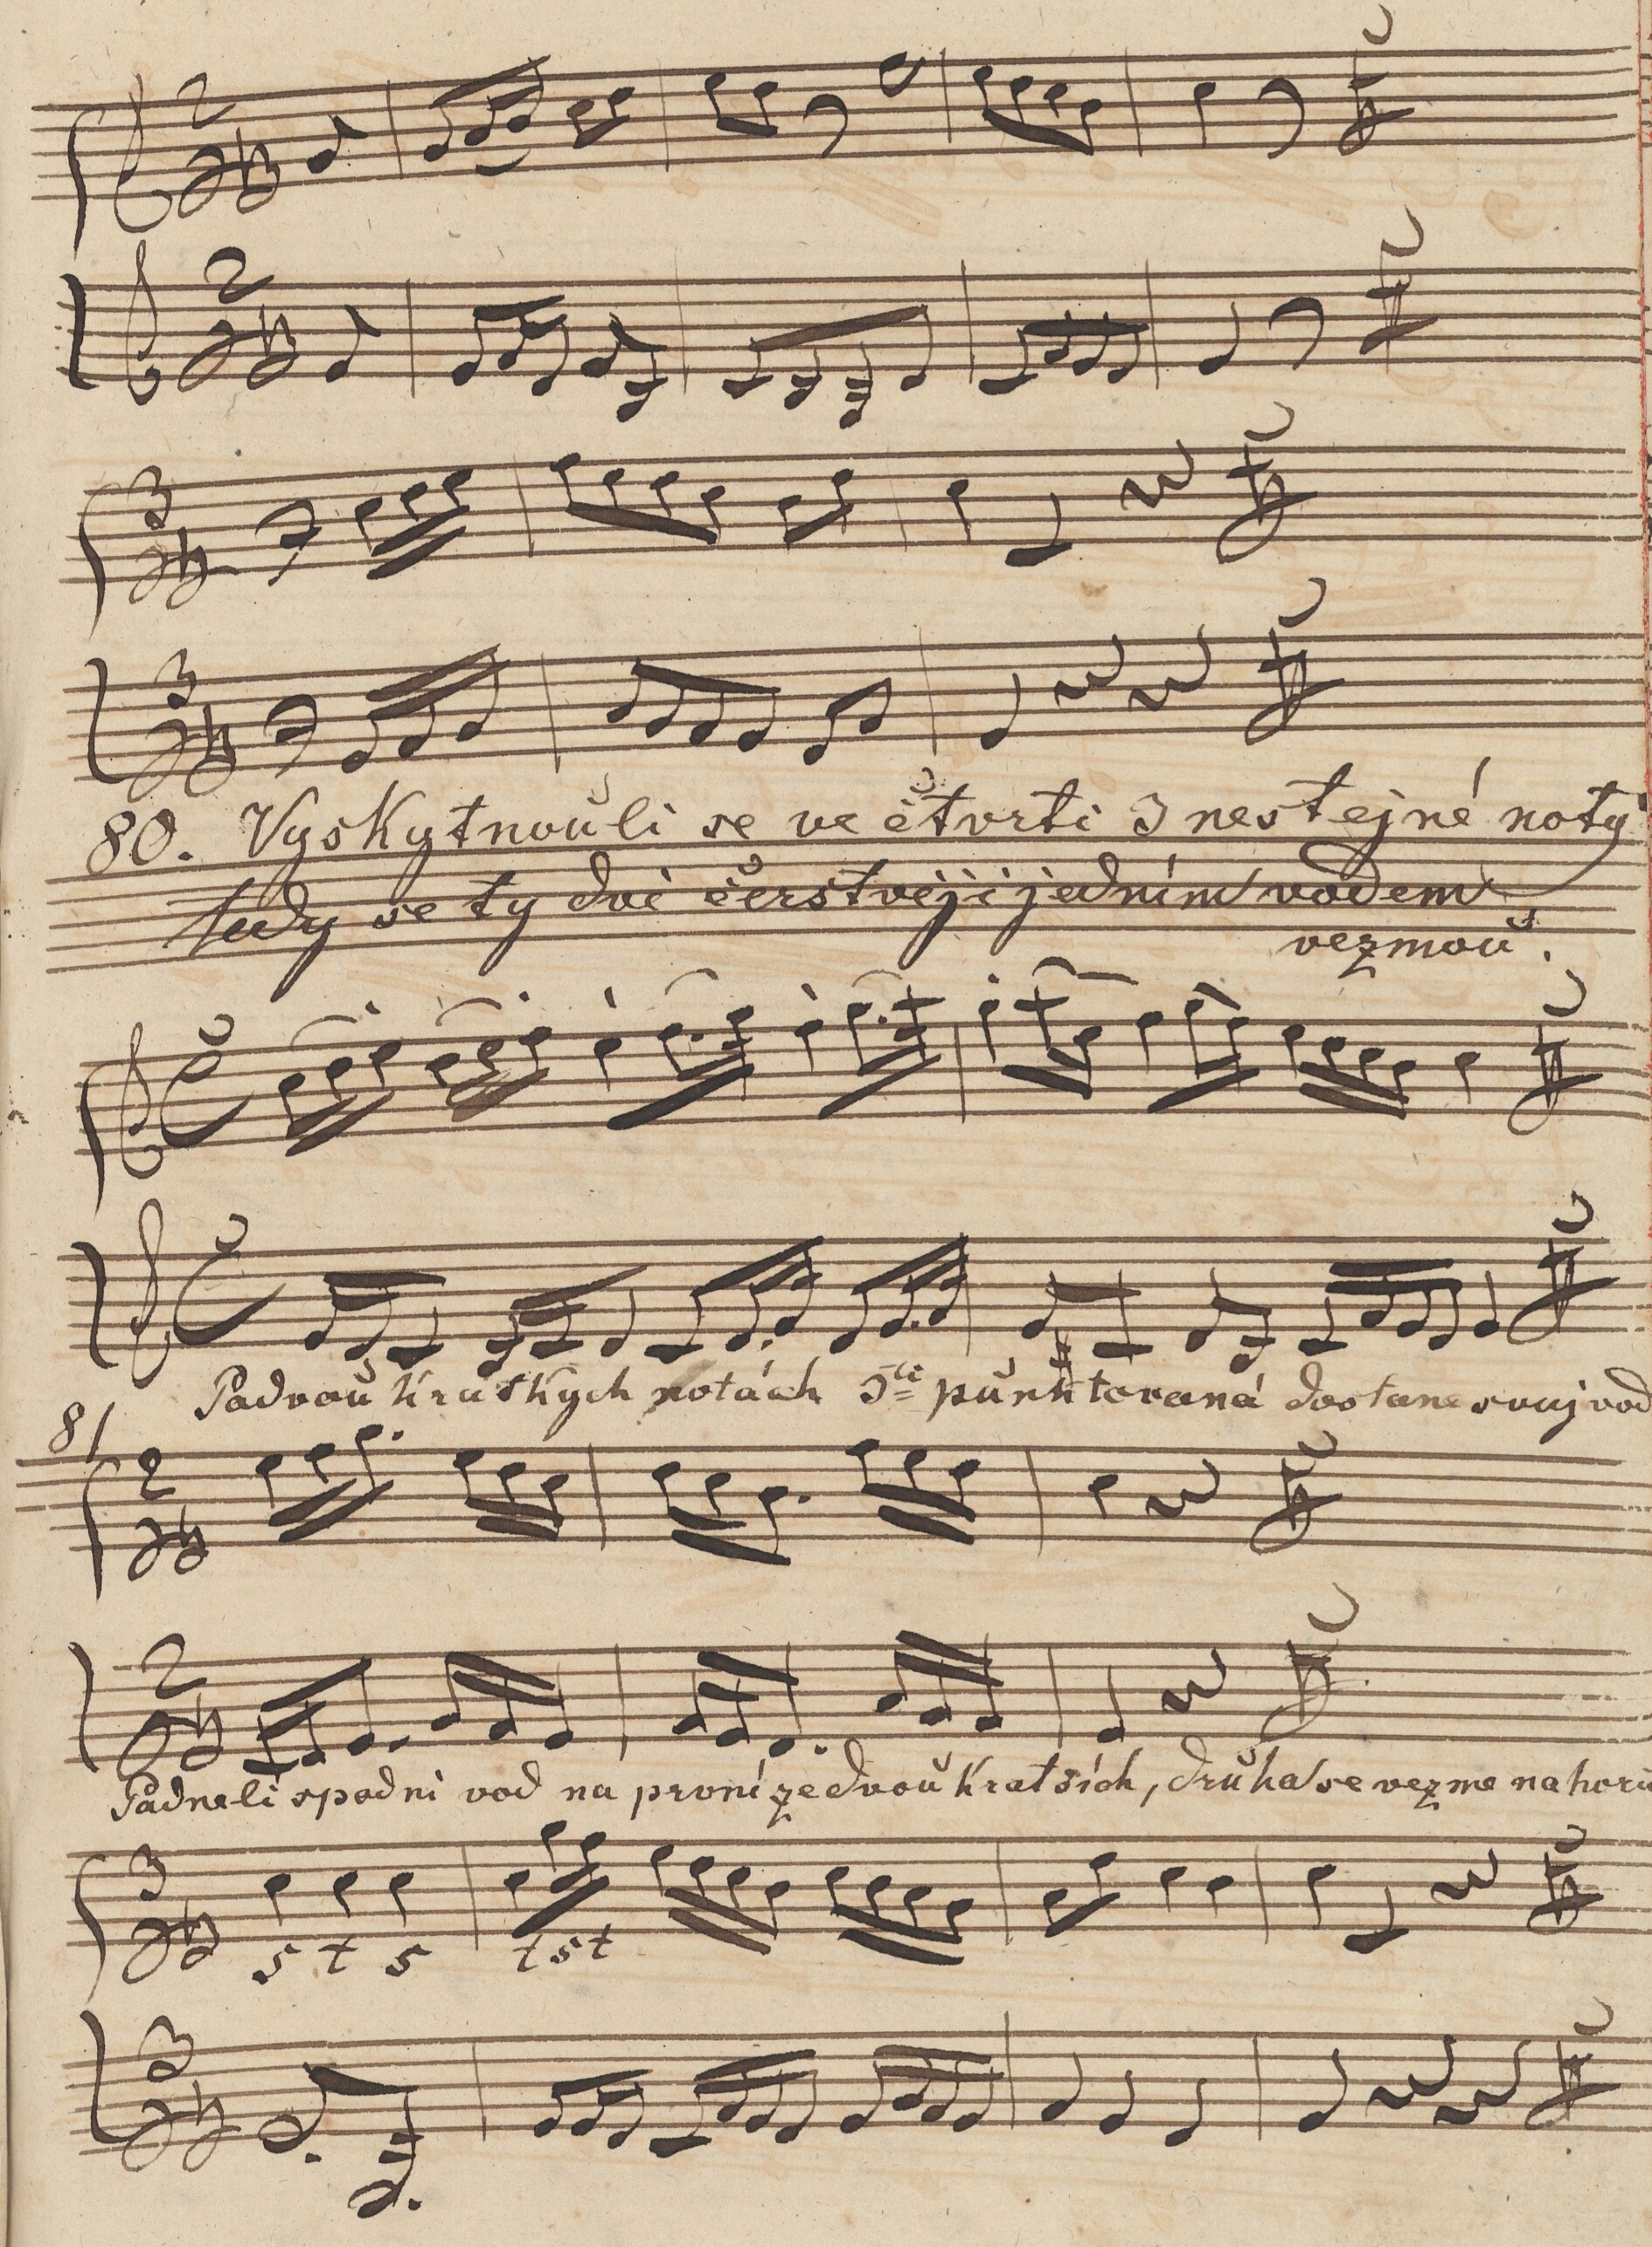 80. Vyskytnouli se ve čtvrti 3 nestejné noty
tedy se ty dvě čerstvěji jedním vodem
vezmou.
Padvou kruškych notách 3tí punktovaná dostane svuj vod
81
Padneli spodni vod na první ze dvou kratších, druha se vezme nahoru
s t s t s t